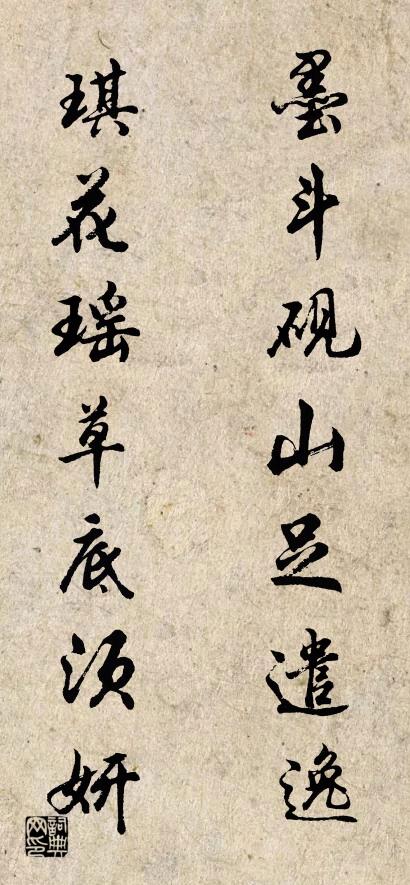 墨斗砚山足遣逸
琪花瑶草底须妍
词典网印